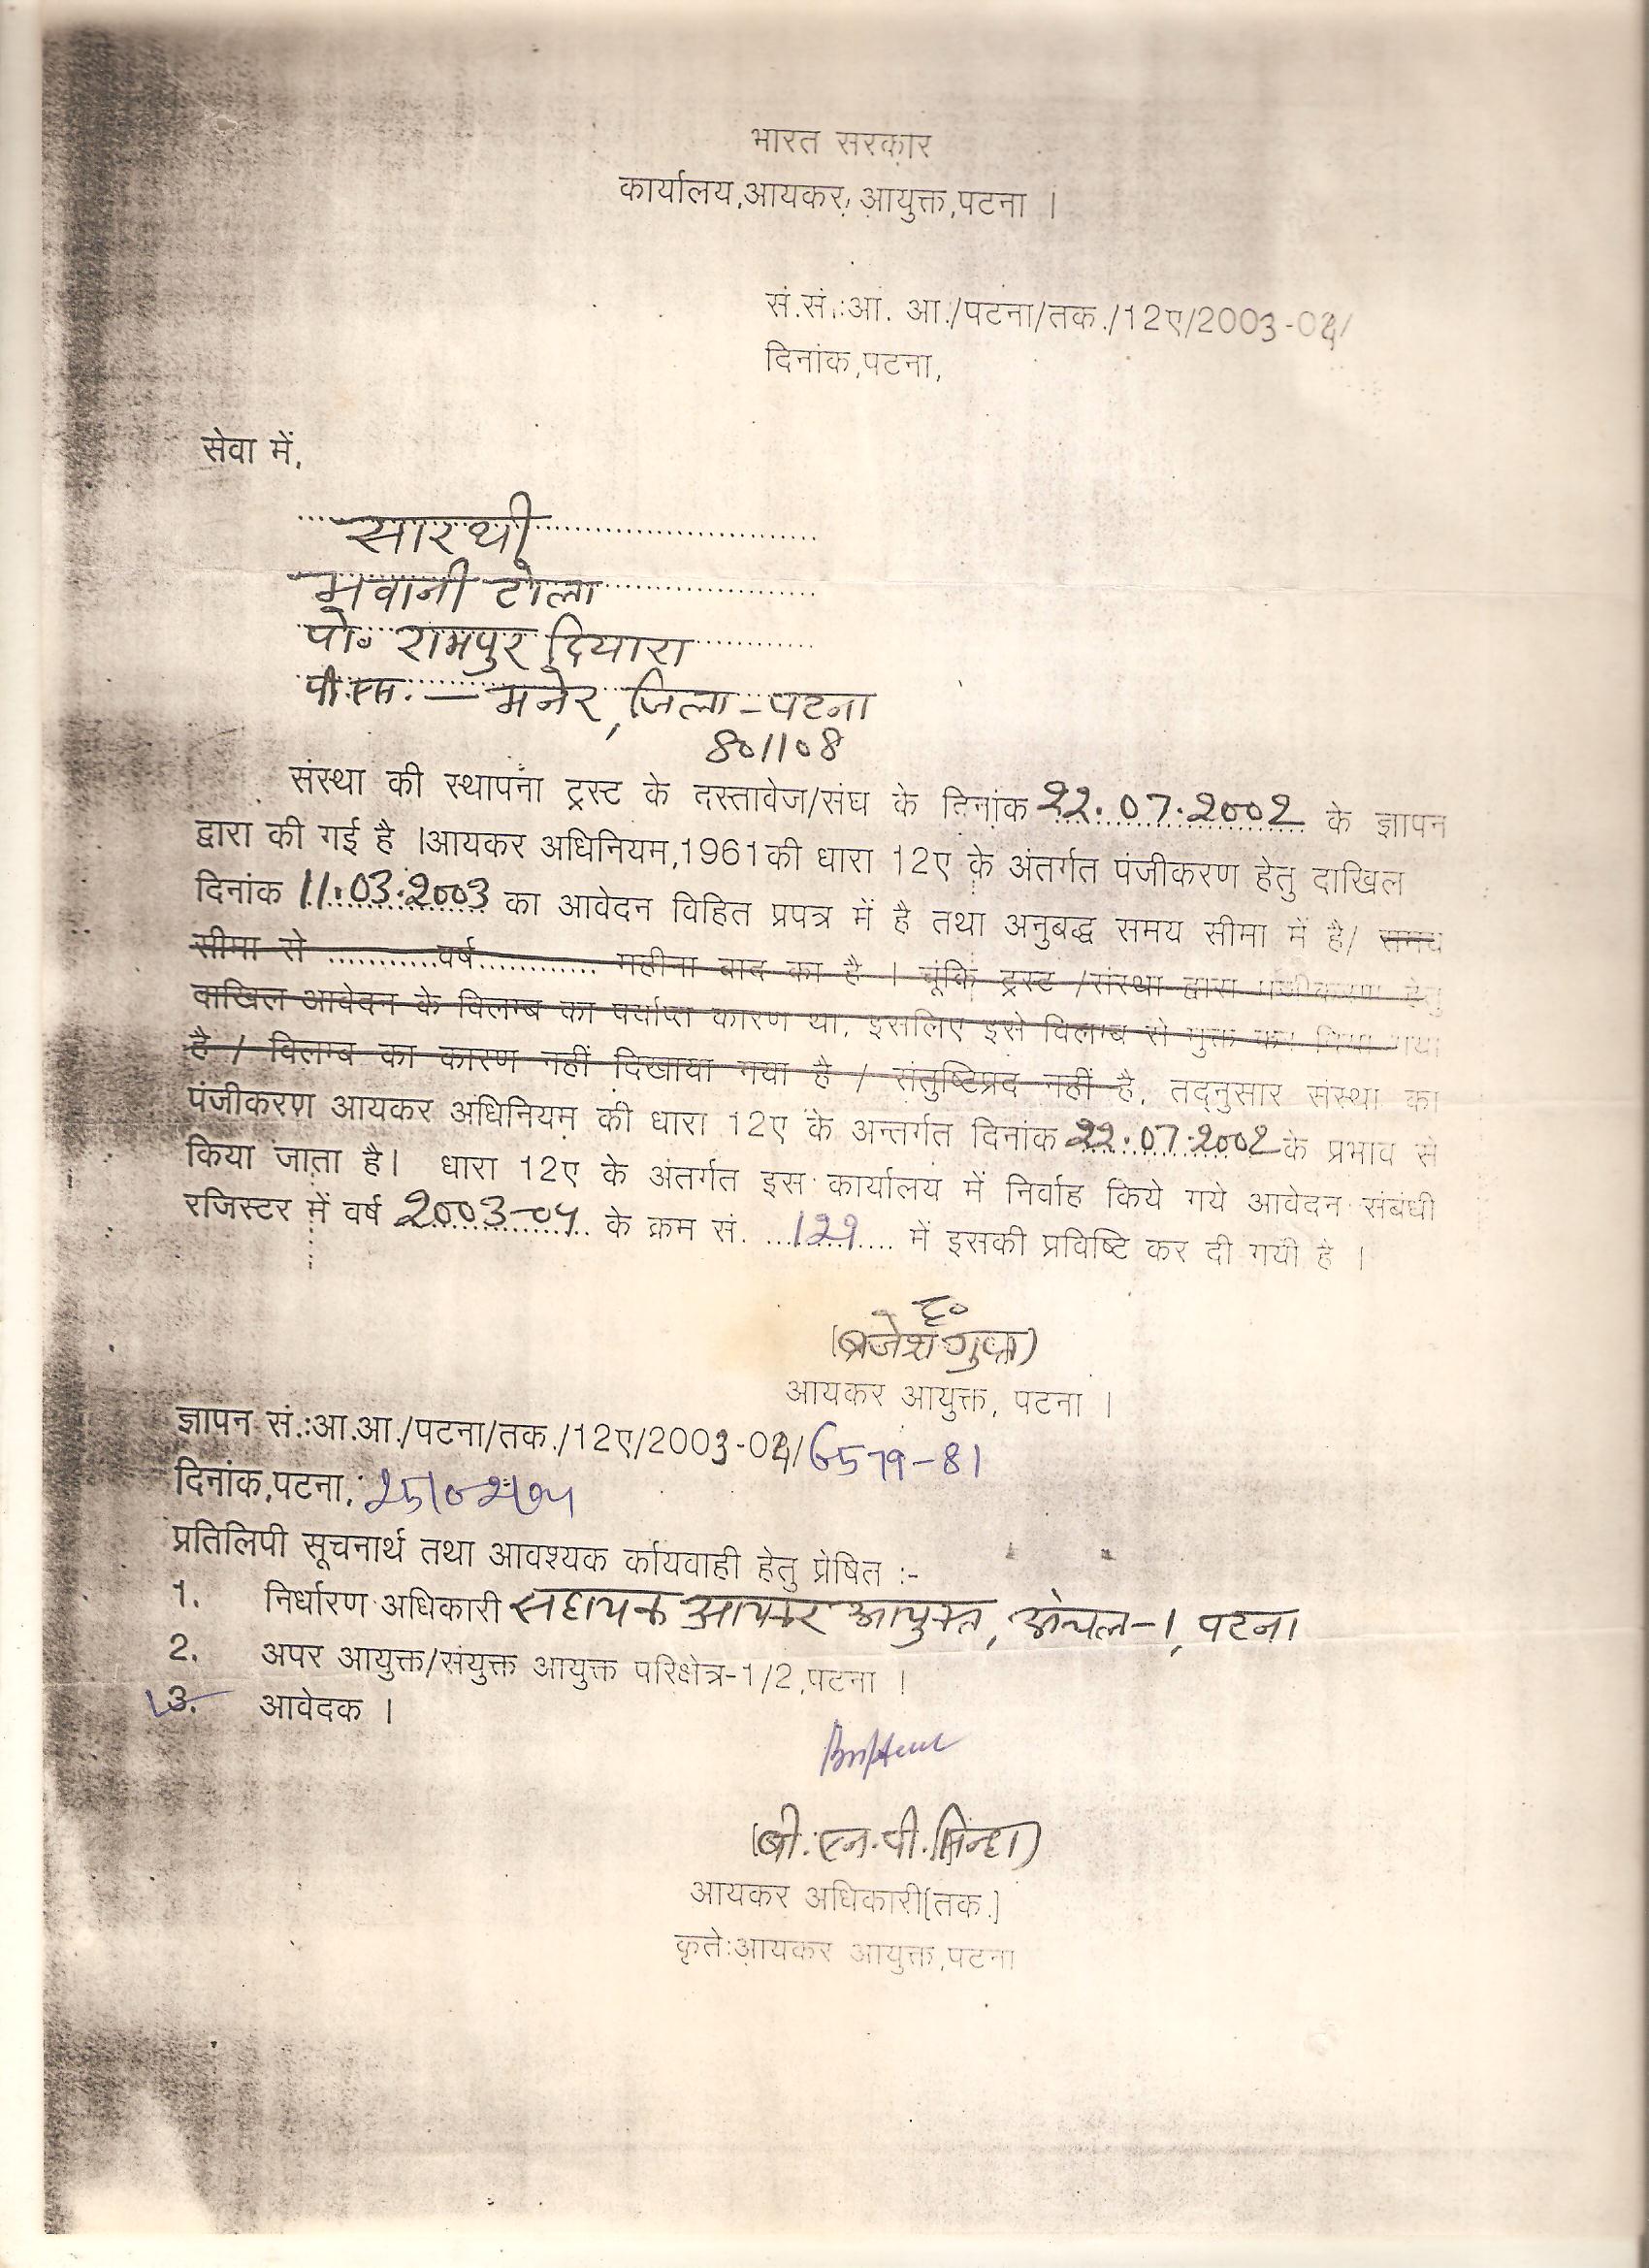 भारत सरकार
कार्यालय,आयकर, आयुक्त,पटना ।
सं.सं.:आ. आ./पटना/तक./12ए/2003-04/
दिनांक,पटना,
सेवा में,
सारथी
भवानी टोला
पो० रामपुर दियारा
पी.एस. — मनेर, जिला - पटना
801108
संस्था की स्थापना ट्रस्ट के दस्तावेज/संघ के दिनांक 22.07.2002 के ज्ञापन
द्वारा की गई है ।आयकर अधिनियम,1961की धारा 12ए के अंतर्गत पंजीकरण हेतु दाखिल
दिनांक 11.03.2003 का आवेदन विहित प्रपत्र में है तथा अनुबद्ध समय सीमा में है/ समय
सीमा से ...........वर्ष............ महीना बाद का है । चूंकि ट्रस्ट /संस्था द्वारा पंजीकरण हेतु
दाखिल आवेदन के विलम्ब का पर्याप्त कारण था, इसलिए इसे विलम्ब से मुक्त कर दिया गया
है / विलम्ब का कारण नहीं दिखाया गया है / संतुष्टिप्रद नहीं है, तद्नुसार संस्था का
पंजीकरण आयकर अधिनियम की धारा 12ए के अन्तर्गत दिनांक 22.07.2002 के प्रभाव से
किया जाता है। धारा 12ए के अंतर्गत इस कार्यालय में निर्वाह किये गये आवेदन संबंधी
रजिस्टर में वर्ष 2003-04 के क्रम सं. 129 में इसकी प्रविष्टि कर दी गयी है ।
ह०
(ब्रजेश गुप्ता)
आयकर आयुक्त, पटना ।
ज्ञापन सं.:आ.आ./पटना/तक./12ए/2003-04/6579-81
दिनांक,पटना,
प्रतिलिपी सूचनार्थ तथा आवश्यक र्कायवाही हेतु प्रेषित :-
1. निर्धारण अधिकारी सहायक आयकर आयुक्त, अंचल-1, पटना
2. अपर आयुक्त/संयुक्त आयुक्त परिक्षेत्र-1/2,पटना ।
3. आवेदक ।
(बी.एन.पी.सिन्हा)
आयकर अधिकारी(तक.)
कृते:आयकर आयुक्त,पटना